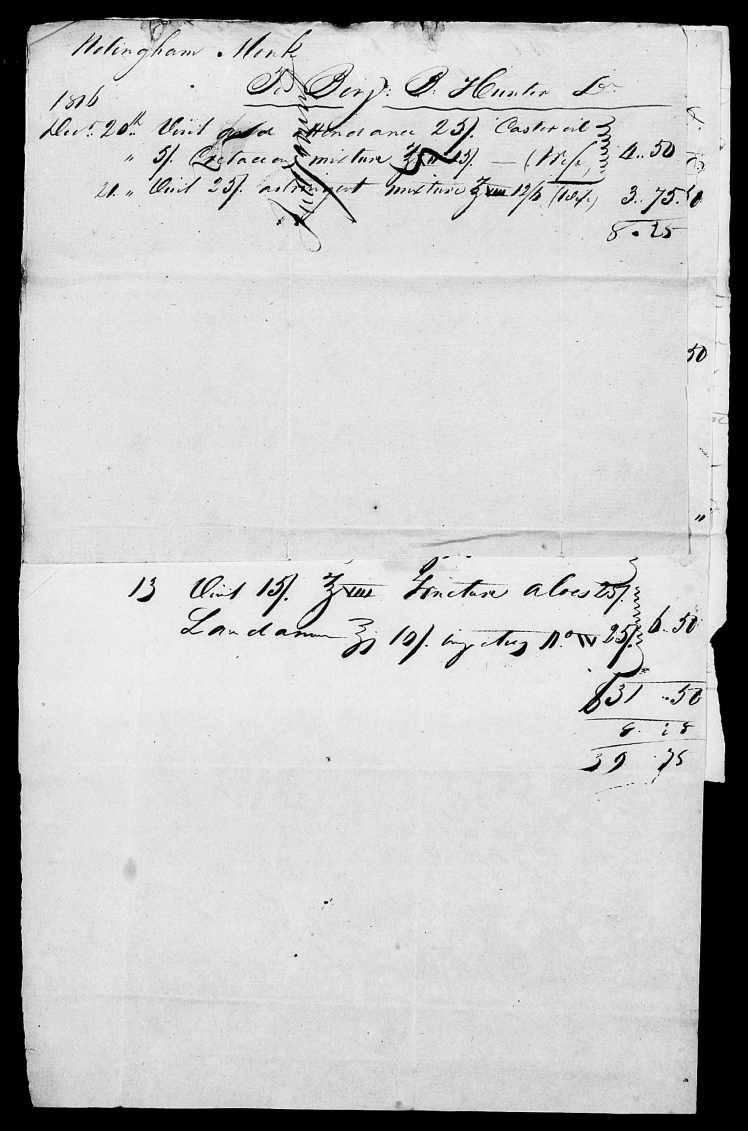 Monk
To Benj. B. Hunter Dr
1816
Decr. 20th Visit and attendance 25/. Castor oil
" 5/. Cretaceous mixture ℥viii 15/. — (Wife) 4..50
21. " Visit 25/. astringent mixture ℥viii 12/6 (Wife) 3..75
8.25
50
"
13 Visit 15/. ℥viii Tincture Aloes 25/.
Laudanum ℥j 10/. No. IV 25/. 6.50
$31..50
8.25
39.75